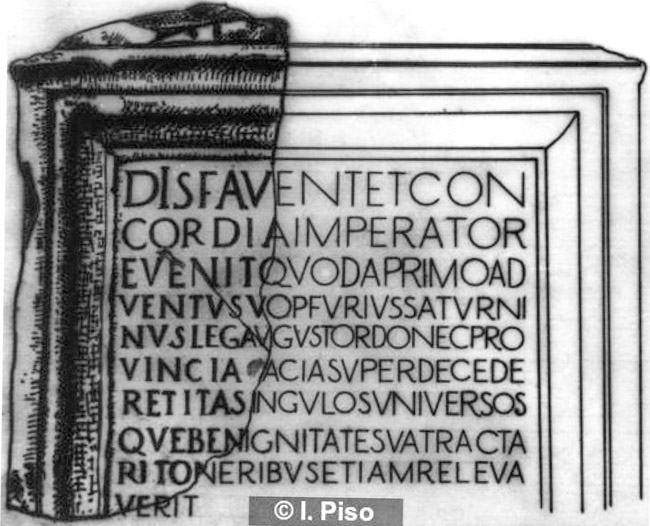 DISFAVENTETCON
CORDIAIMPERATOR
EVENITQVODAPRIMOAD
VENTVSVOPFVRIVSSATVRNI
NVSLEGAVGVSTORDONECPRO
VINCIA ACIASVPERDECEDE
RETITASINGVLOSVNIVERSOS
QVEBENIGNITATESVATRACTA
RITONERIBVSETIAMRELEVA
VERIT
© I. Piso